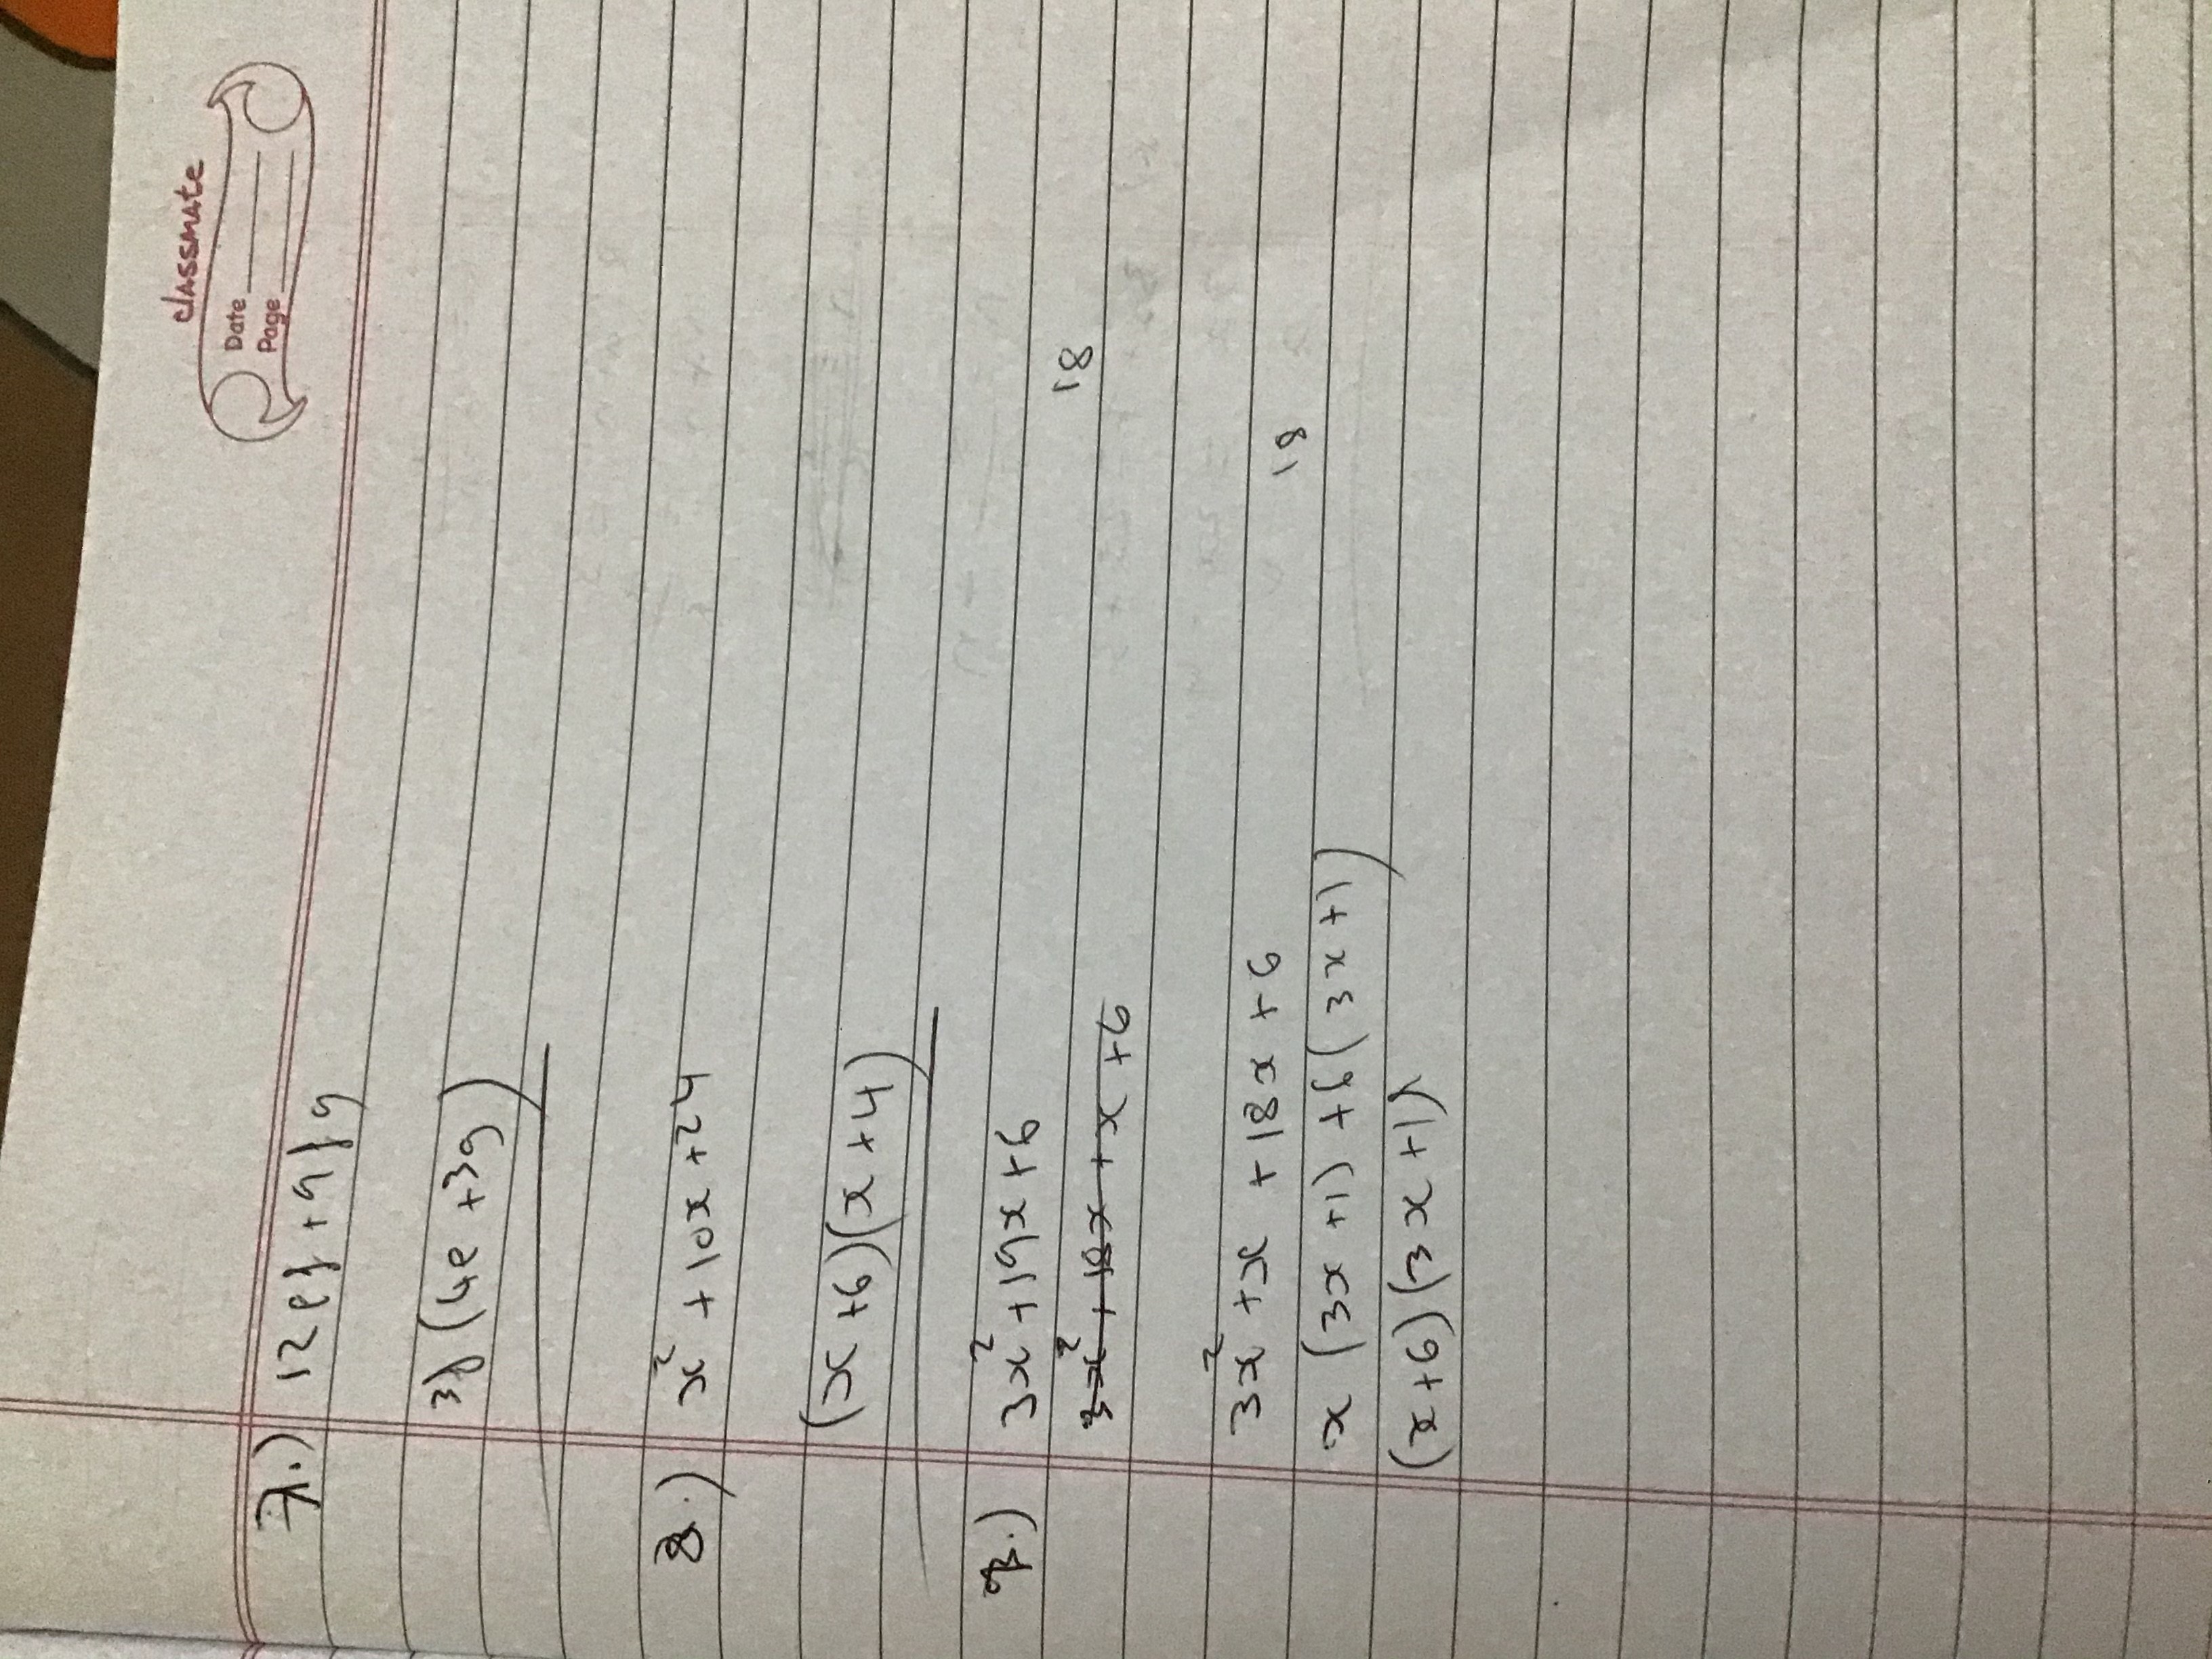 classmate
Date
Page
7.) 12ef + 9fg
3f (4e + 3g)
8.) x² + 10x + 24
(x + 6)(x + 4)
9.) 3x² + 19x + 6
18
3x² + 18x + x + 6
3x² + x + 18x + 6
18
x (3x + 1) + 6 (3x + 1)
(x + 6) (3x + 1)